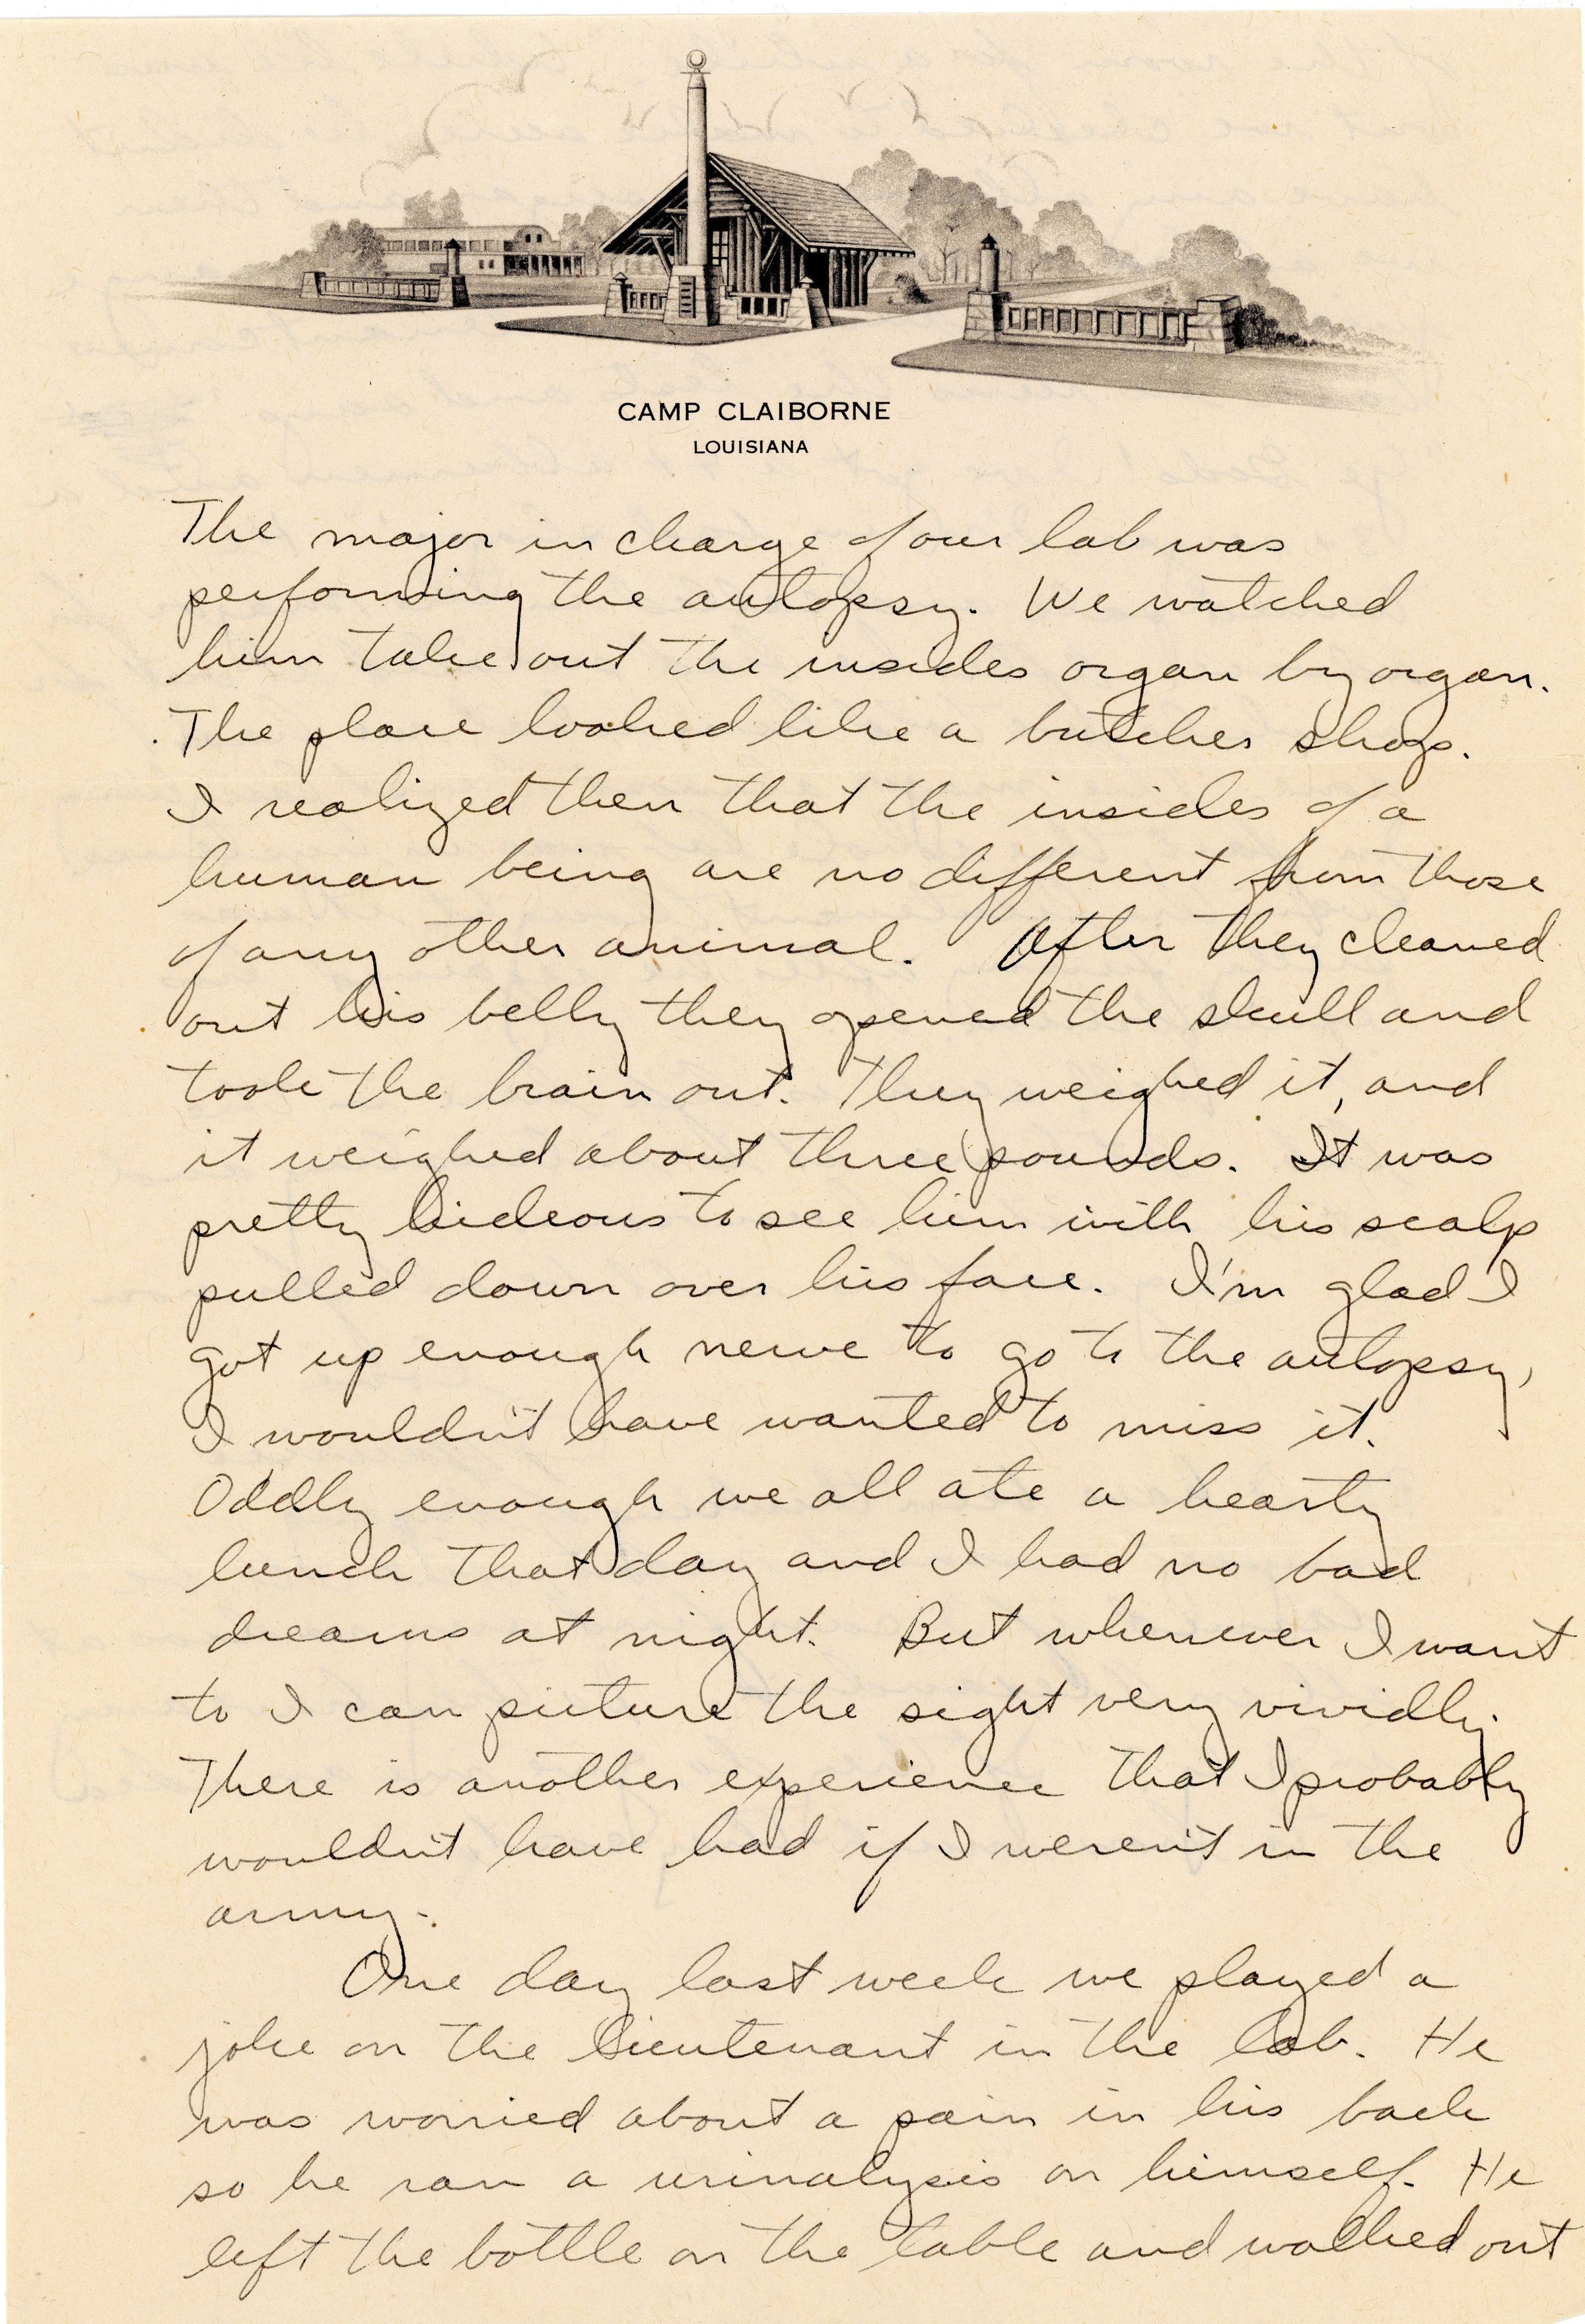 CAMP CLAIBORNE
LOUISIANA
The major in charge of our lab was
performing the autopsy. We watched
him take out the insides organ by organ.
The place looked like a butcher shop.
I realized then that the insides of a
human being are no different from those
of any other animal. After they cleaned
out his belly they opened the skull and
took the brain out. They weighed it, and
it weighed about three pounds. It was
pretty hideous to see him with his scalp
pulled down over his face. I'm glad I
got up enough nerve to go to the autopsy,
I wouldn't have wanted to miss it.
Oddly enough we all ate a hearty
lunch that day and I had no bad
dreams at night. But whenever I want
to I can picture the sight very vividly.
There is another experience that I probably
wouldn't have had if I weren't in the
army.
One day last week we played a
joke on the lieutenant in the lab. He
was worried about a pain in his back
so he ran a urinalysis on himself. He
left the bottle on the table and walked out